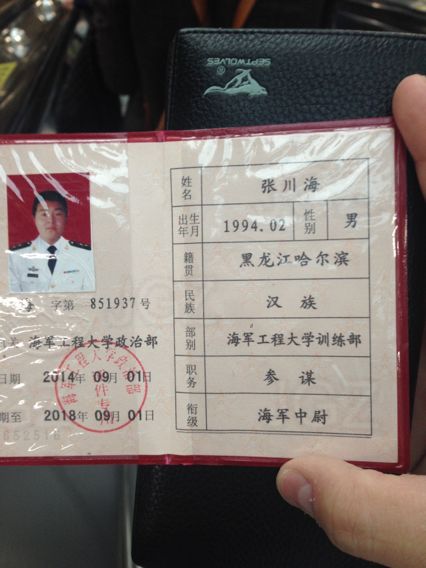 SEPTWOLVES
®
字第 851937 号
海军工程大学政治部
日期 2014年 09月 01日
期至 2018年 09月 01日
证件专用
姓名 张川海
出生年月 1994.02 性别 男
籍贯 黑龙江哈尔滨
民族 汉族
部别 海军工程大学训练部
职务 参谋
衔级 海军中尉